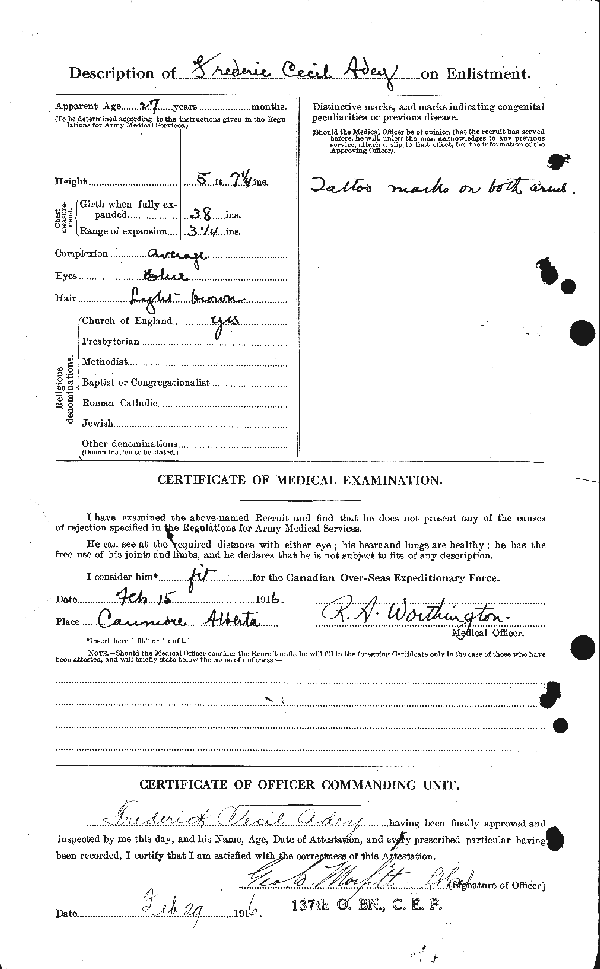 Description of Frederic Cecil Adey on Enlistment.
Apparent Age 27 years months.
(To be determined according to the instructions given in the Regulations for Army Medical Services.)
Height 5 ft. 7¼ ins.
Chest measurement.
Girth when fully expanded 38 ins.
Range of expansion 3¼ ins.
Complexion Average
Eyes blue
Hair Light brown
Religious denominations.
Church of England yes
Presbyterian
Methodist
Baptist or Congregationalist
Roman Catholic
Jewish
Other denominations
(Denomination to be stated.)
Distinctive marks, and marks indicating congenital
peculiarities or previous disease.
(Should the Medical Officer be of opinion that the recruit has served
before, he will, unless the man acknowledges to any previous
service, attach a slip to that effect, for the information of the
Approving Officer).
Tattoo marks on both arms.
CERTIFICATE OF MEDICAL EXAMINATION.
I have examined the above-named Recruit and find that he does not present any of the causes
of rejection specified in the Regulations for Army Medical Services.
He can see at the required distance with either eye; his heart and lungs are healthy; he has the
free use of his joints and limbs, and he declares that he is not subject to fits of any description.
I consider him* fit for the Canadian Over-Seas Expeditionary Force.
Date Feb 15 1916
Place Canmore Alberta
R. A. Worthington.
Medical Officer.
*Insert here "fit" or "unfit."
NOTE.—Should the Medical Officer consider the Recruit unfit, he will fill in the foregoing Certificate only in the case of those who have
been attested, and will briefly state below the cause of unfitness:—
CERTIFICATE OF OFFICER COMMANDING UNIT.
Frederick Cecil Adey having been finally approved and
inspected by me this day, and his Name, Age, Date of Attestation, and every prescribed particular having
been recorded, I certify that I am satisfied with the correctness of this Attestation.
(Signature of Officer)
Date Feb 29 1916.
137th O. BN., C. E. F.